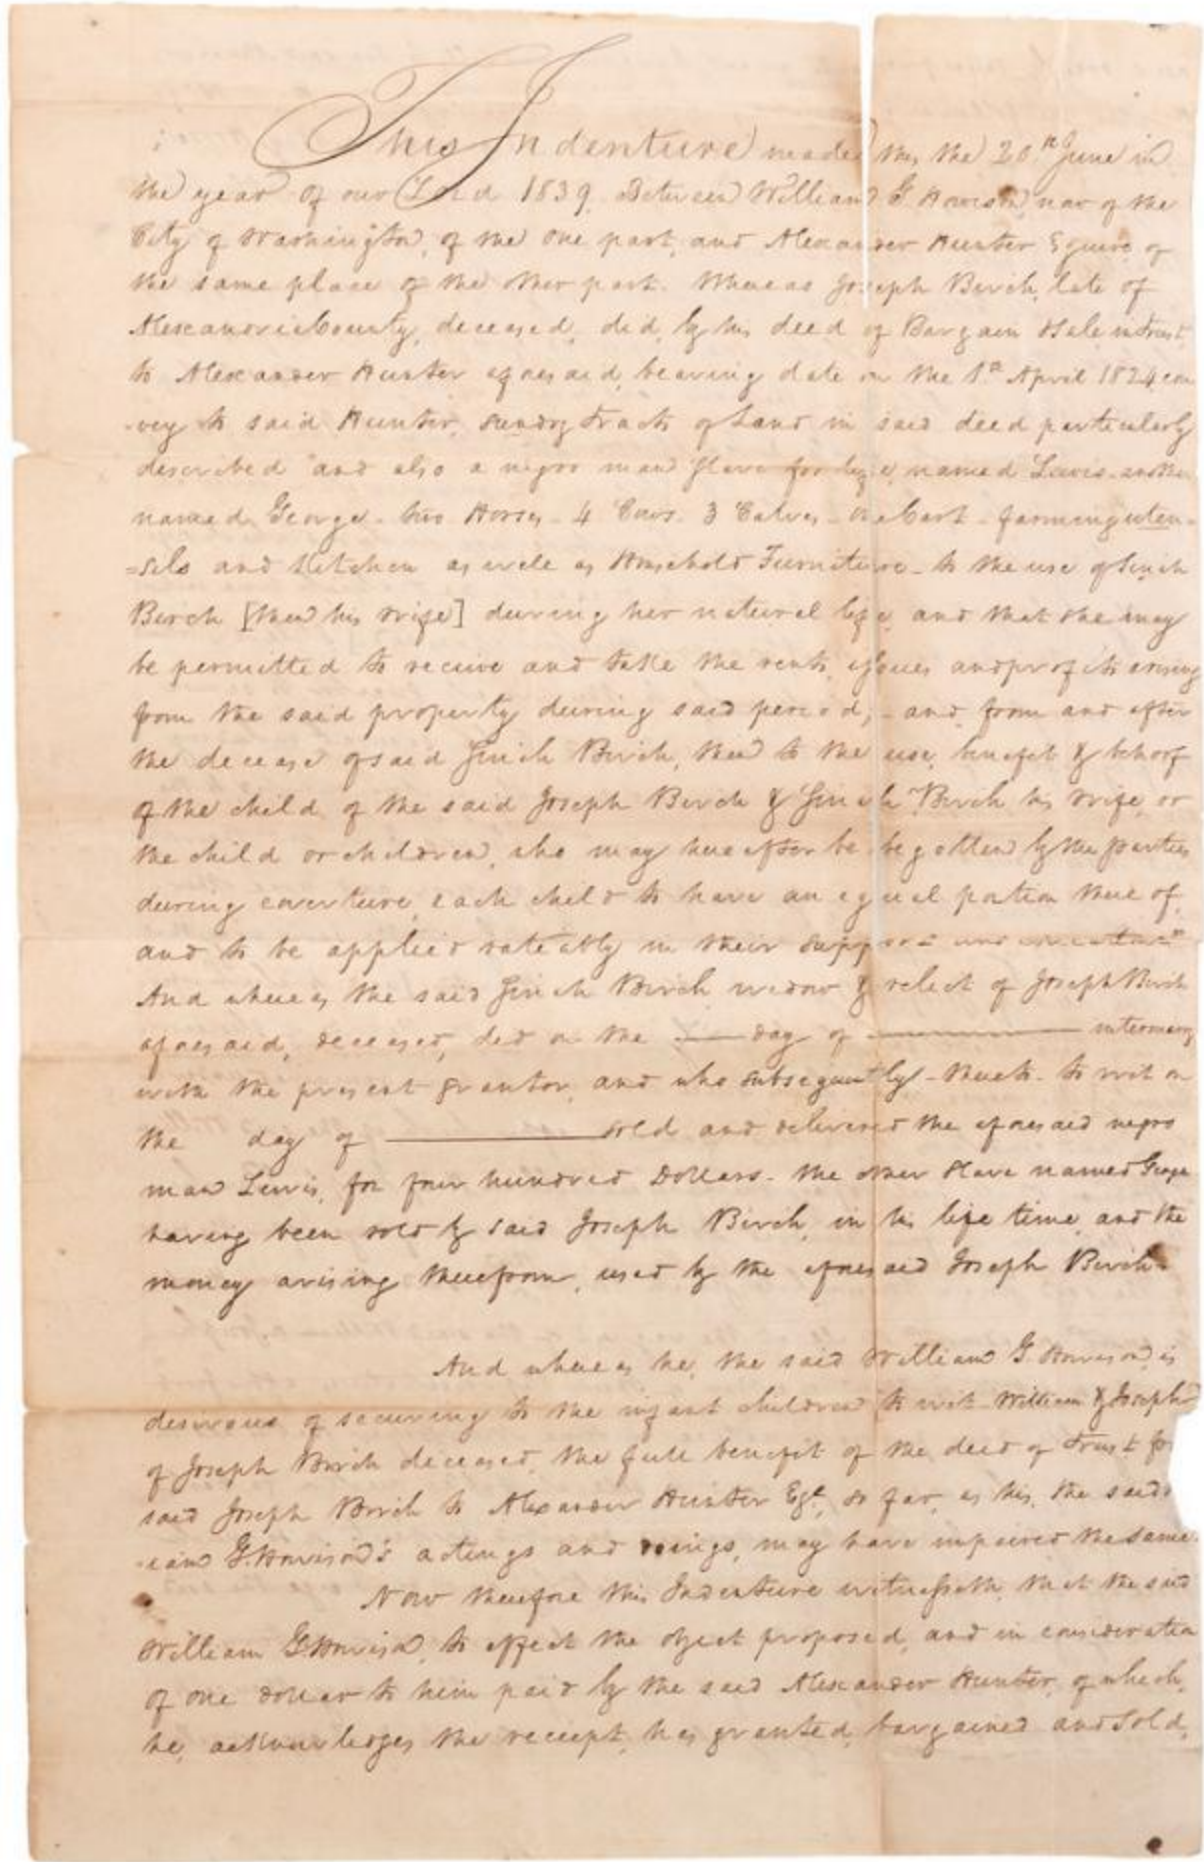 This Indenture made this the 20th June in
the year of our Lord 1839, Between William G. Howison, now of the
City of Washington, of the one part, and Alexander Hunter Esquire of
the same place of the other part. Whereas Joseph Birch, late of
Alexandria County, deceased, did, by his deed of Bargain & Sale in Trust,
to Alexander Hunter aforesaid, bearing date on the 1st April 1824, con
-vey to said Hunter, sundry Tracts of Land in said deed particularly
described and also a negro man Slave for life, named Lewis. another
named George. two Horses. 4 Cows. 3 Calves. One Cart. farming uten-
=sils and Kitchen as well as Household Furniture. to the use of
Birch [then his wife] during her natural life, and that she may
be permitted to receive and take the rents, issues and profits arising
from the said property during said period; - and, from and after
the decease of said Birch, then to the use, benefit & behoof
of the child of the said Joseph Birch & Birch his wife, or
the child or children, who may hereafter be begotten by the parties
during coverture, each child to have an equal portion thereof,
and to be applied rateably in their support and
And whereas the said Birch widow & relict of Joseph Birch
aforesaid, deceased, did on the —— day of ———— intermarry
with the present grantor, and who subsequently thereto. to wit on
the day of ———— sold and delivered the aforesaid negro
man Lewis, for four hundred Dollars. the other Slave named George
having been sold by said Joseph Birch, in his life time, and the
money arising therefrom, used by the aforesaid Joseph Birch.
And whereas he, the said William G. Howison, is
desirous of securing to the infant children to wit. William & Joseph
of Joseph Birch deceased, the full benefit of the deed of Trust
said Joseph Birch to Alexander Hunter Esqr. so far, as his, the said
-iam G. Howison's actings and doings, may have impaired the same.
Now therefore this Indenture witnesseth, that the said
William G. Howison, to effect the object proposed, and in consideration
of one dollar to him paid by the said Alexander Hunter, of which,
he, acknowledges the receipt, has granted, bargained and Sold,